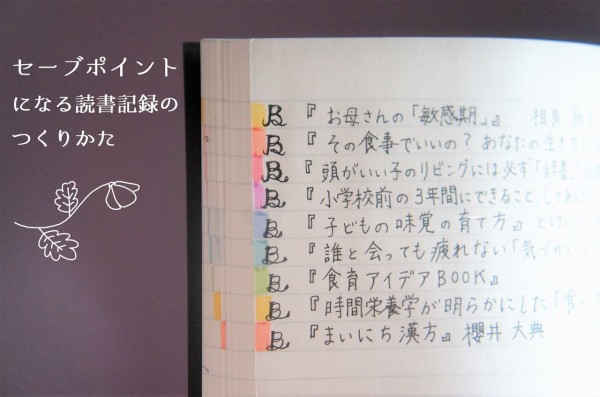 セーブポイント
になる読書記録の
つくりかた
B『お母さんの「敏感期」』 相良
B『その食事でいいの?あなたの生き
B『頭がいい子のリビングには必ず「辞書」
B『小学校前の3年間にできること、して
B『子どもの味覚の育て方』 とけい
B『誰と会っても疲れない「気づかい」
B『食育アイデアBOOK』
B『時間栄養学が明らかにした「食べ
B『まいにち漢方』 櫻井 大典